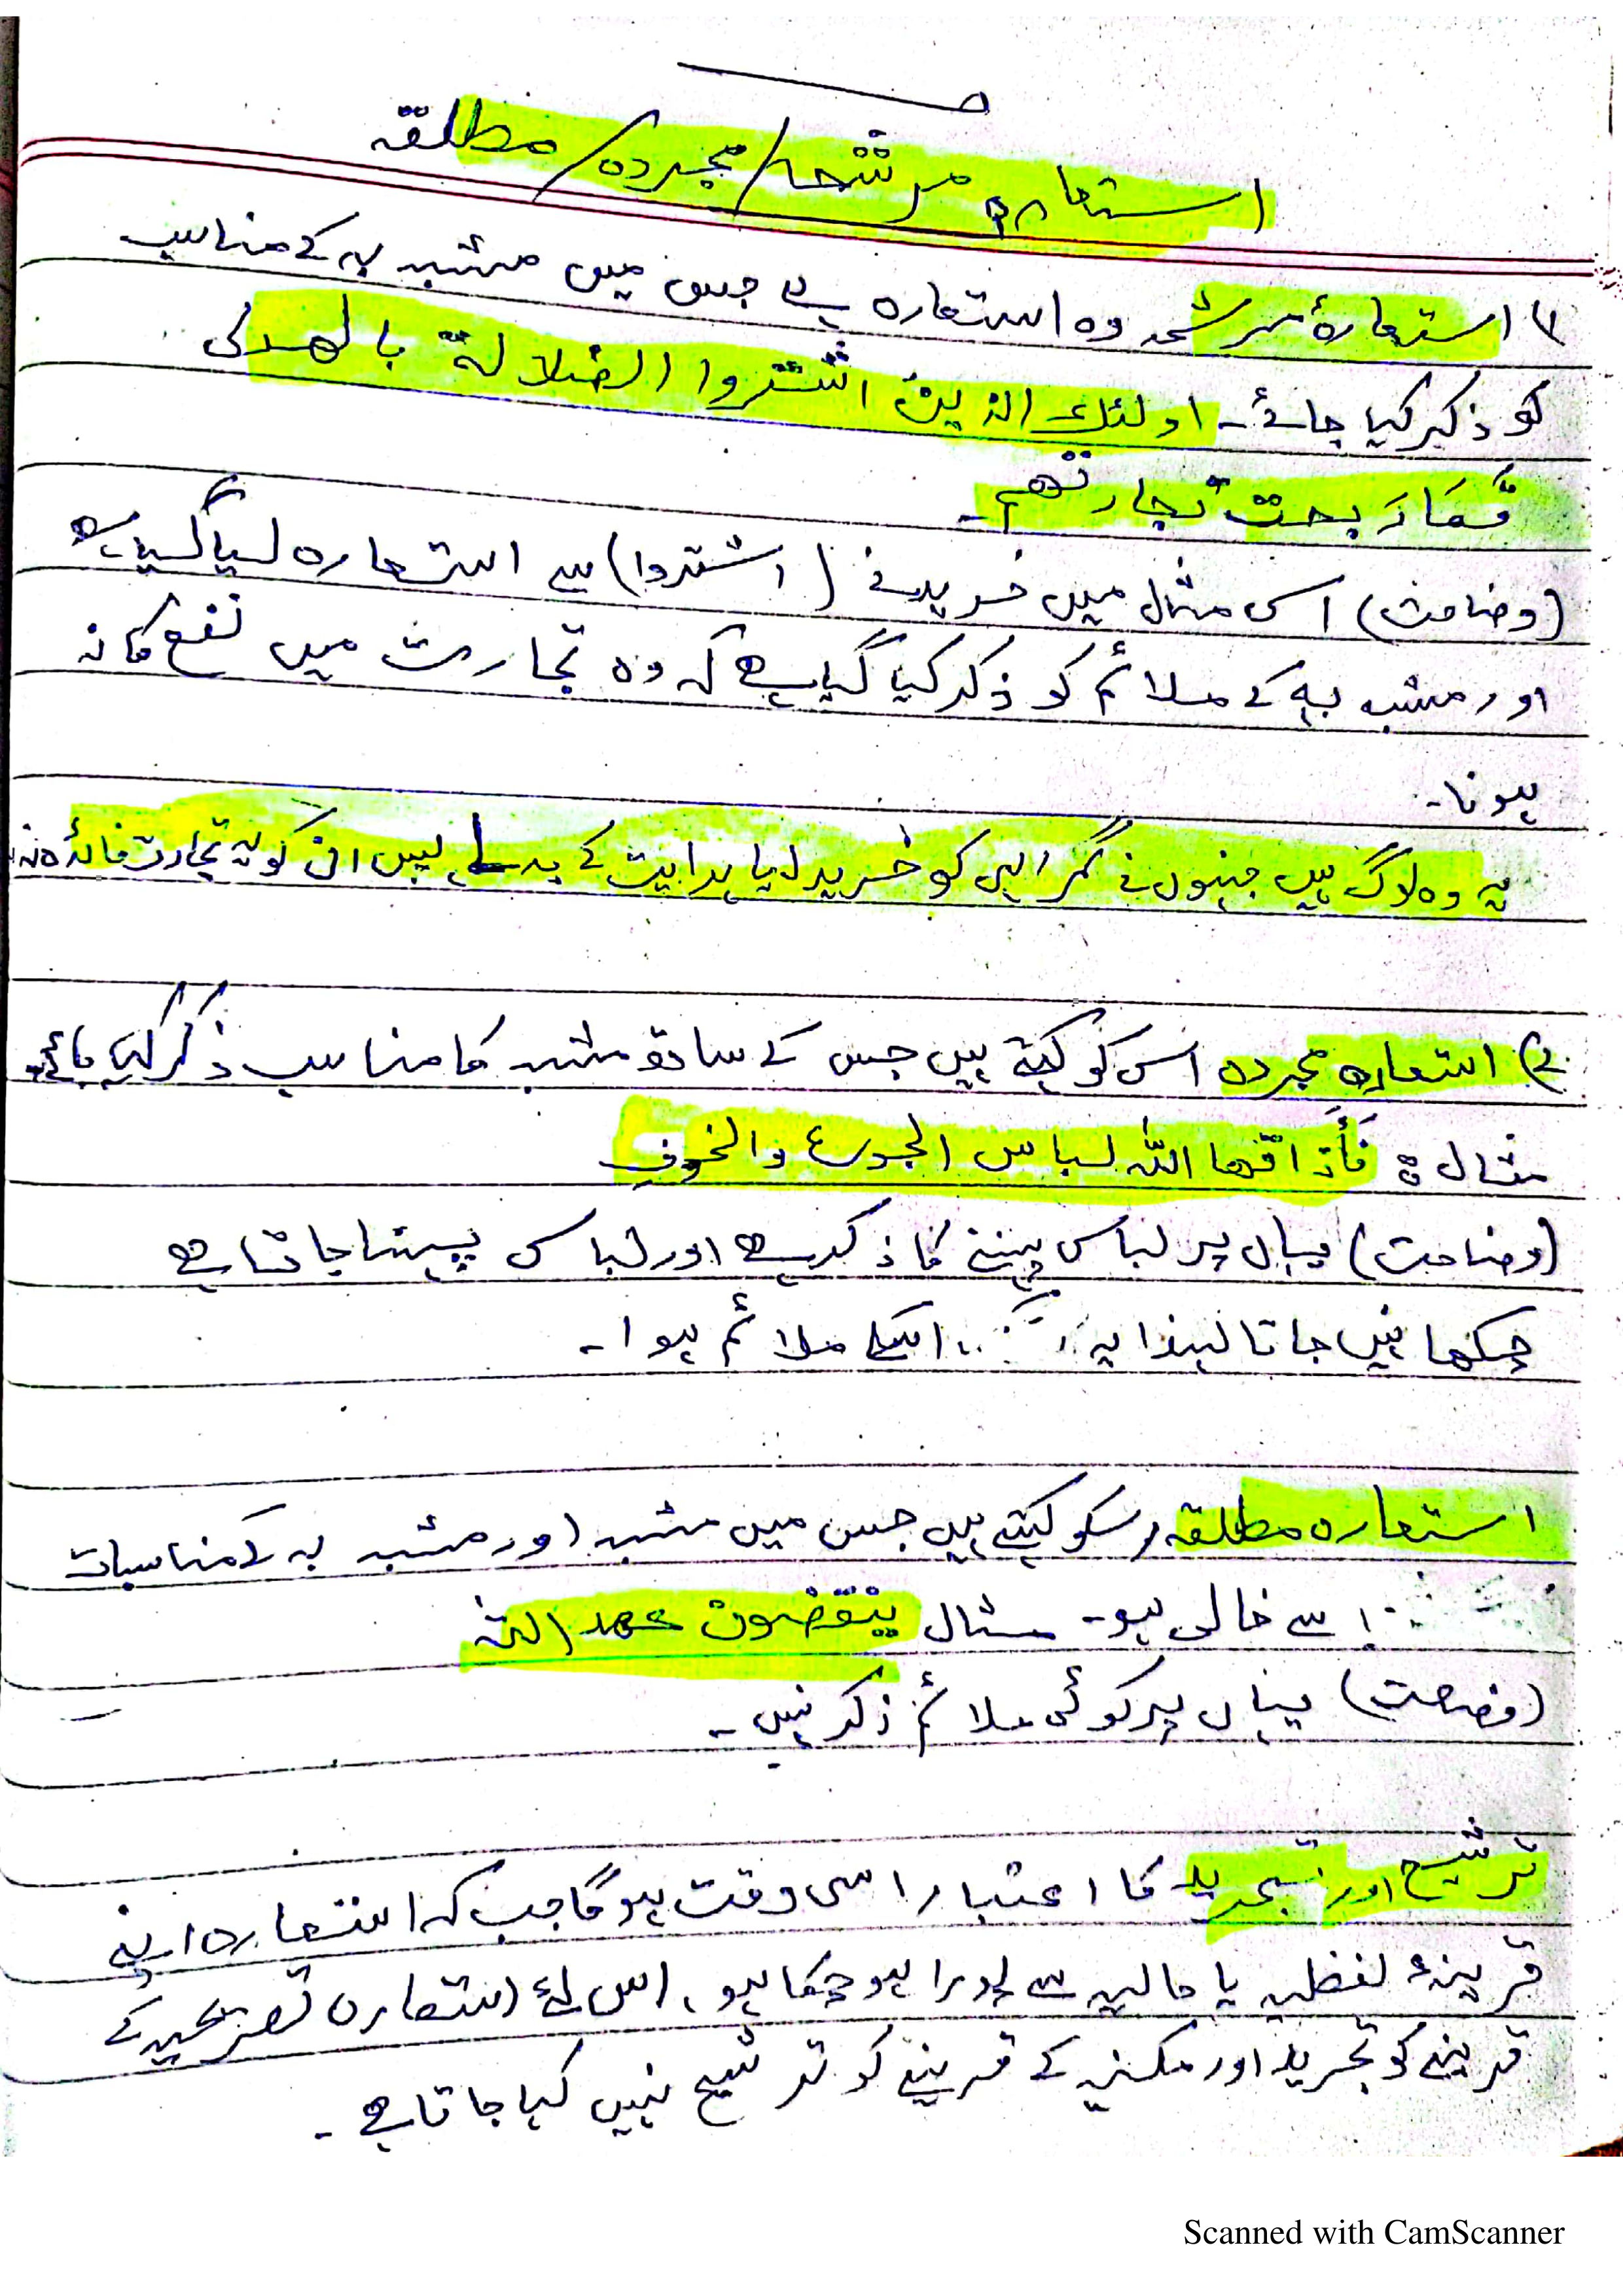 استعارہ مرشحہ/مجردہ/مطلقہ
۱) استعارۂ مرشحہ وہ استعارہ ہے جس میں مشبہ بہ کے مناسب
کو ذکر کیا جائے۔ اولئک الذین اشتروا الضلالة بالھدی
فَمَا رَبحت تجارتھم۔
(وضاحت) اس مثال میں خریدنے (اشتروا) سے استعارہ لیا گیا ہے
اور مشبہ بہ کے ملائم کو ذکر کیا گیا ہے کہ وہ تجارت میں نفع کا نہ
ہونا۔
یہ وہ لوگ ہیں جنہوں نے گمراہی کو خرید لیا ہدایت کے بدلے پس ان کو یہ تجارت فائدہ نہ
۲) استعارہ مجردہ اس کو کہتے ہیں جس کے ساتھ مشبہ کا مناسب ذکر کیا جائے۔
مثال : فَأَذاقھا اللہ لباس الجوع والخوفِ
(وضاحت) یہاں پر لباس پہننے کا ذکر ہے اور لباس پہنا جاتا ہے
چکھا نہیں جاتا لہذا یہ اسکے ملائم ہوا۔
استعارہ مطلقہ اسکو کہتے ہیں جس میں مشبہ اور مشبہ بہ کے مناسبات
سے خالی ہو۔ مثال ینقضون عھد اللہ
(وضاحت) یہاں پر کوئی ملائم ذکر نہیں۔
ترشیح اور تجرید کا اعتبار اسی وقت ہوگا جب کہ استعارہ اپنے
قرینۂ لفظیہ یا حالیہ سے پورا ہو چکا ہو، اس لئے استعارہ تصریحیہ کے
قرینے کو تجرید اور مکنیہ کے قرینے کو ترشیح نہیں کہا جاتا ہے۔
Scanned with CamScanner